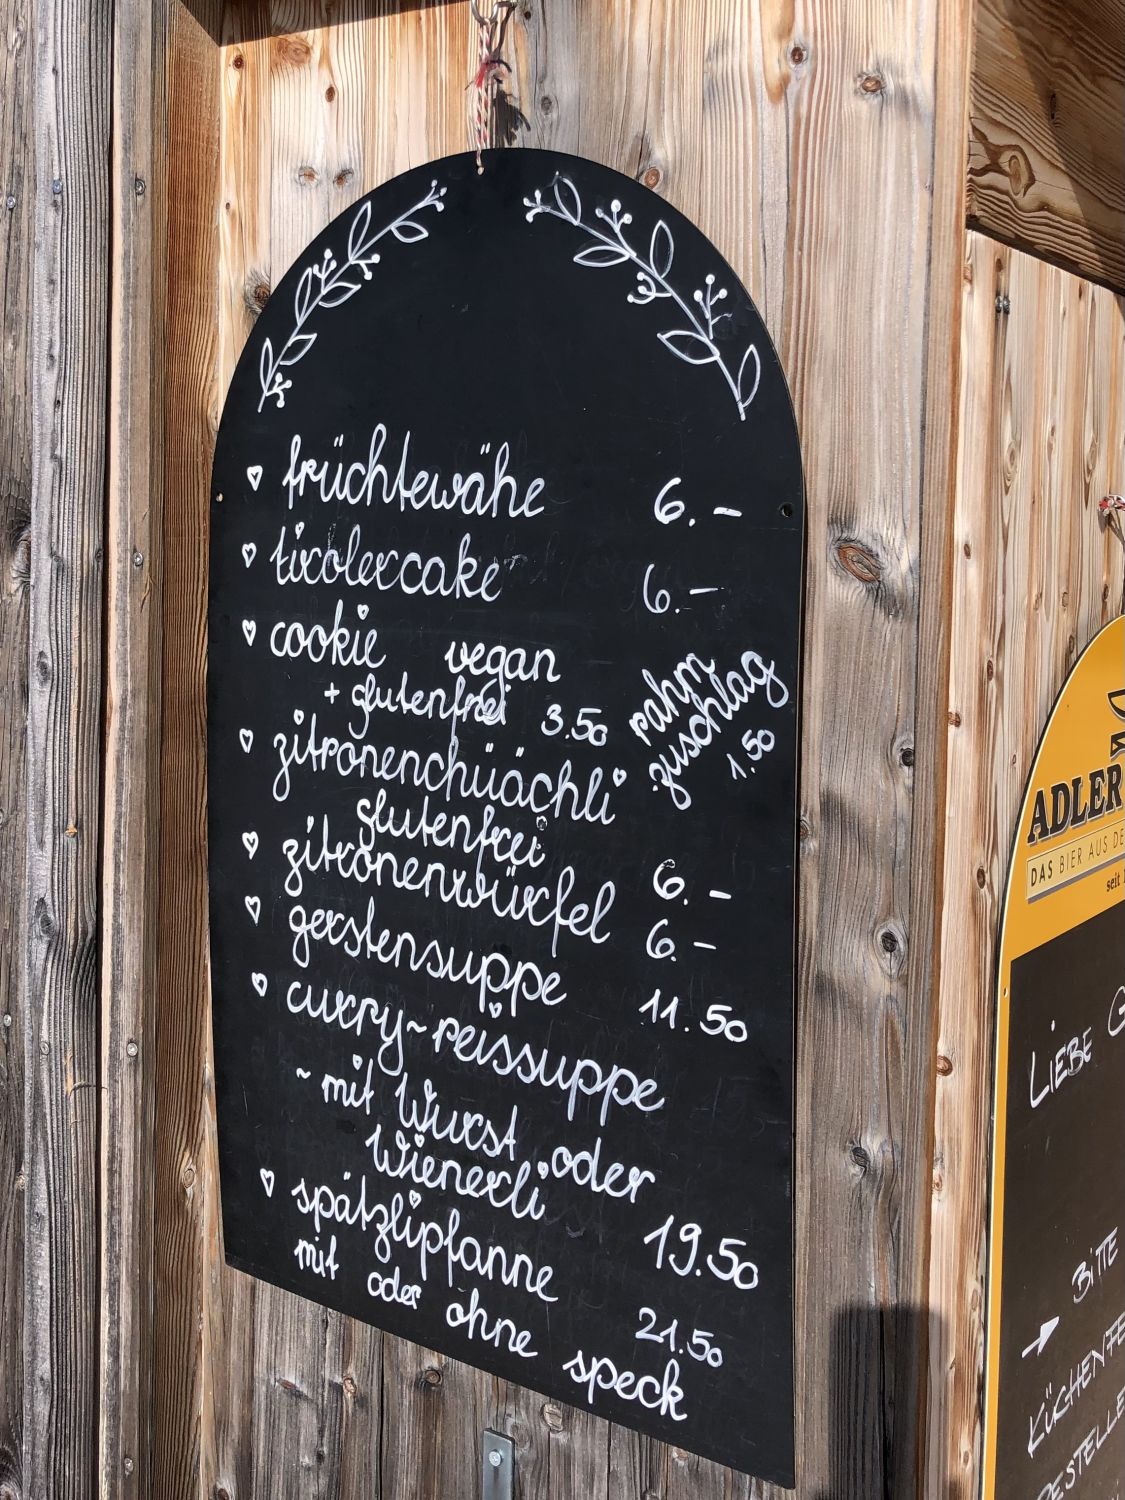 früchtewähe 6.-
tirolercake 6.-
cookie vegan
+ glutenfrei 3.50
rahm
zuschlag
1.50
zitronenchüächli
glutenfrei 6.-
zitronenwürfel 6.-
gerstensuppe 11.50
curry~reissuppe
~ mit Wurst oder
Wienerli 19.50
spätzlipfanne 21.50
mit oder ohne speck
ADLER
DAS BIER AUS DE
seit 1
LIEBE G
BITTE
→ KÜCHENFE
BESTELLE